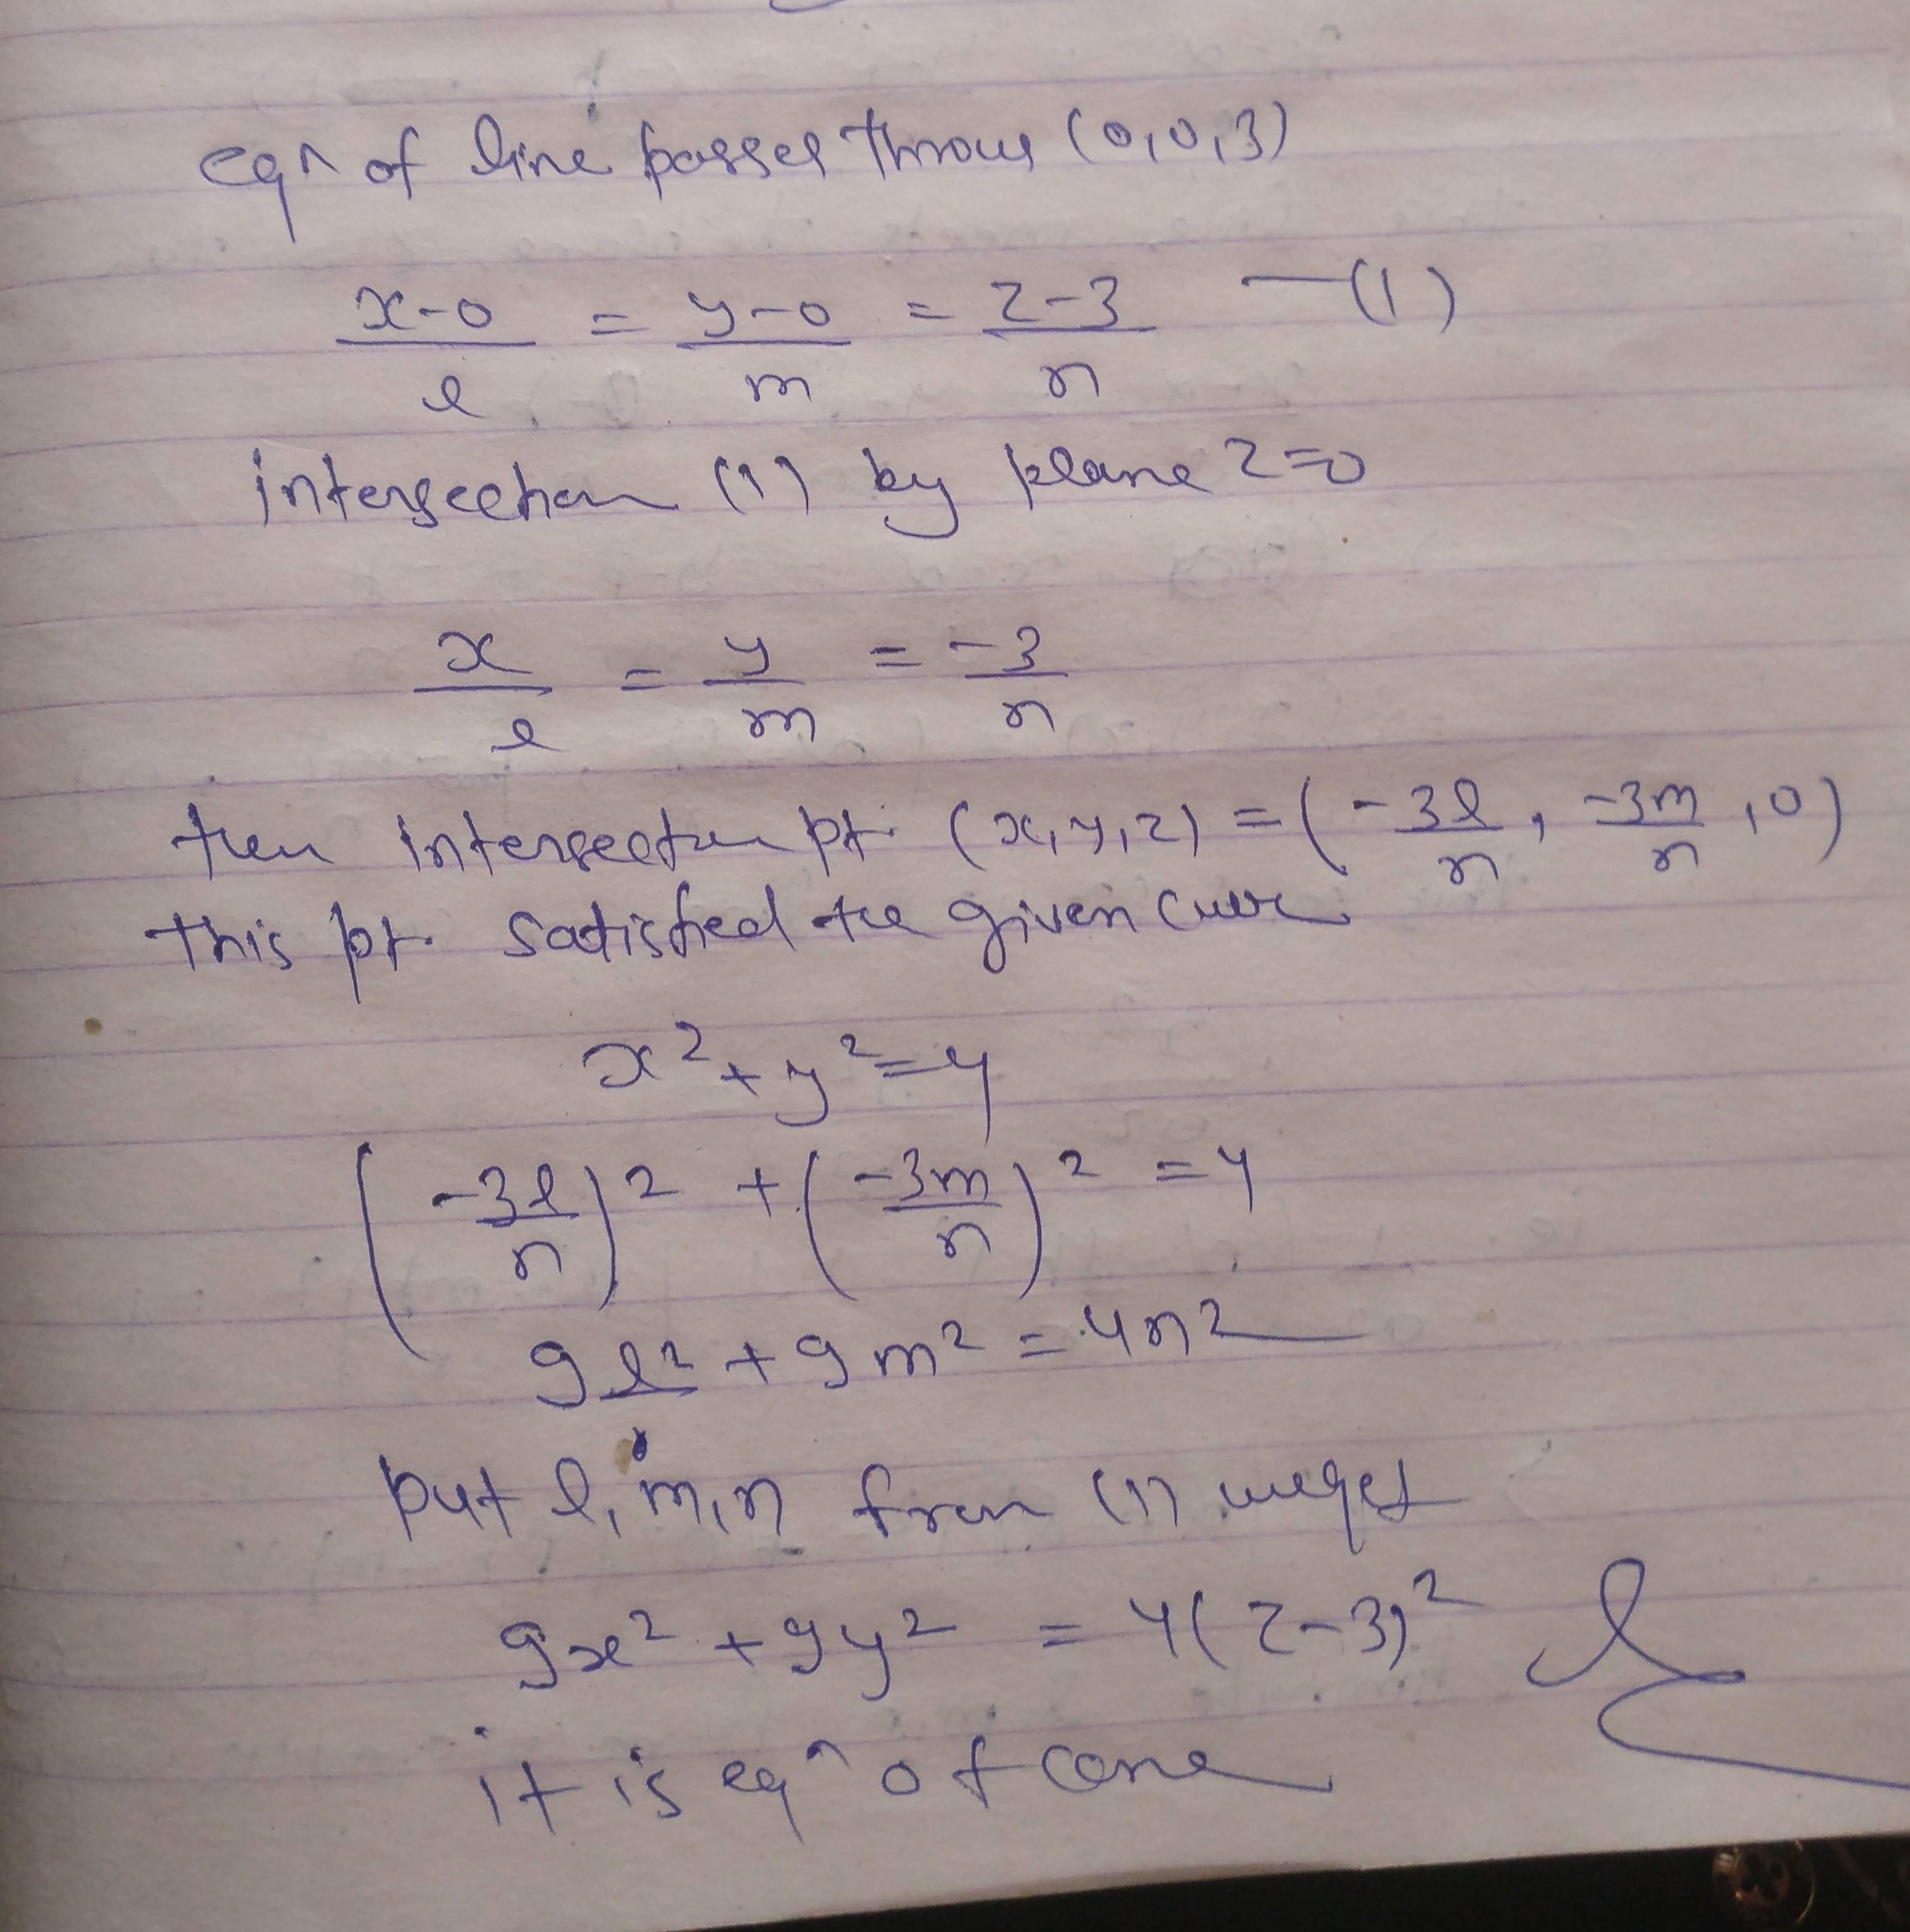 eqn of line passes throug (0,0,3)
x-0/l = y-0/m = z-3/n —(1)
intersection (1) by plane z=0
x/l = y/m = -3/n
then intersection pt. (x,y,z) = (-3l/n, -3m/n, 0)
this pt. satisfied the given curve
x²+y²=4
(-3l/n)² + (-3m/n)² = 4
9l² + 9m² = 4n²
put l, m, n from (1) we get
9x² + 9y² = 4(z-3)²
it is eqn of cone